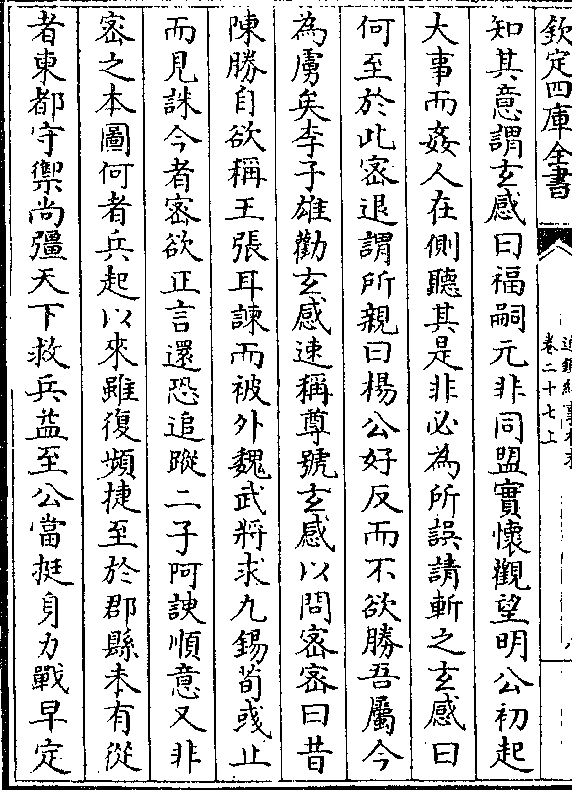 欽定四庫全書
卷二十七上
知其意謂玄感曰福嗣元非同盟實懷觀望明公初起
大事而姦人在側聽其是非必為所誤請斬之玄感曰
何至於此密退謂所親曰楊公好反而不欲勝吾屬今
為虜矣李子雄勸玄感速稱尊號玄感以問密密曰昔
陳勝自欲稱王張耳諫而被外魏武將求九錫荀彧止
而見誅今者密欲正言還恐追蹤二子阿諛順意又非
密之本圖何者兵起以來雖復頻捷至於郡縣未有從
者東都守禦尚彊天下救兵益至公當挺身力戰早定